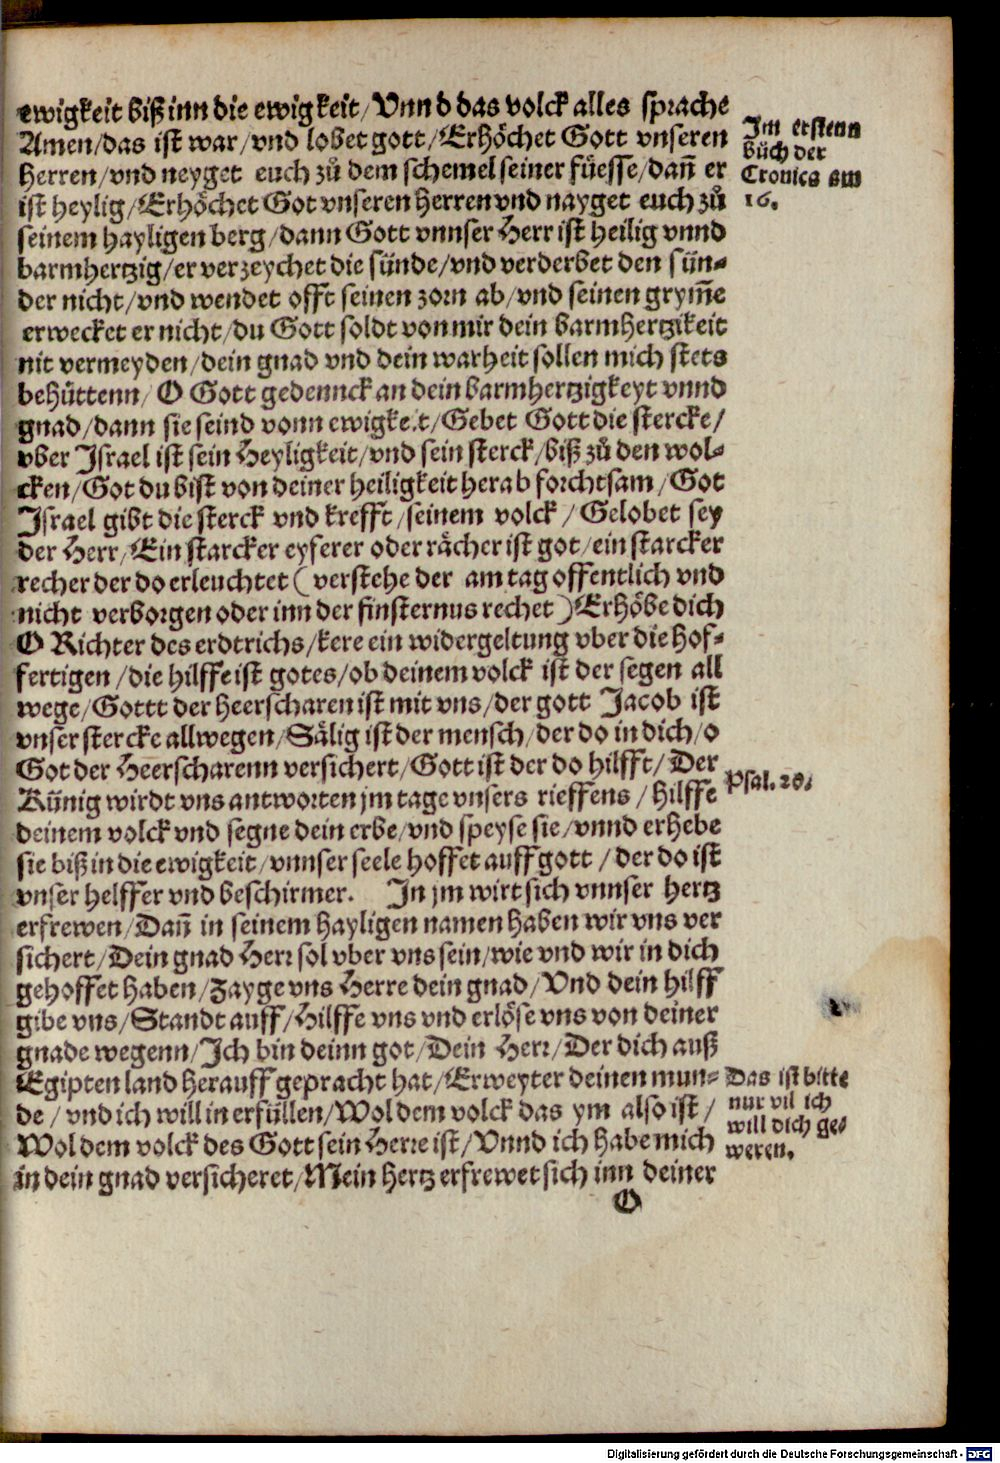 ewigkeit biß inn die ewigkeit/Vnnd das volck alles sprache
Amen/das ist war/vnd lobet gott/Erhöchet Gott vnseren
Herren/vnd neyget euch zů dem schemel seiner füesse/dañ er
ist heylig/Erhöchet Got vnseren Herren vnd nayget euch zů
seinem hayligen berg/dann Gott vnnser Herr ist heilig vnnd
barmhertzig/er verzeychet die sünde/vnd verderbet den sün-
der nicht/vnd wendet offt seinen zorn ab/vnd seinen grym̃e
erwecket er nicht/du Gott soldt von mir dein barmhertzikeit
nit vermeyden/dein gnad vnd dein warheit sollen mich stets
behüttenn/O Gott gedennck an dein barmhertzigkeyt vnnd
gnad/dann sie seind vonn ewigkeit/Gebet Gott die stercke/
vber Israel ist sein Heyligkeit/vnd sein sterck/biß zů den wol-
cken/Got du bist von deiner heiligkeit herab forchtsam/Got
Israel gibt die sterck vnd krefft/seinem volck/Gelobet sey
der Herr/Ein starcker eyferer oder rächer ist got/ein starcker
recher der do erleuchtet (verstehe der am tag offentlich vnd
nicht verborgen oder inn der finsternus rechet) Erhöbe dich
O Richter des erdtrichs/kere ein widergeltung vber die hof-
fertigen/die hilffe ist gotes/ob deinem volck ist der segen all
wege/Gottt der heerscharen ist mit vns/der gott Jacob ist
vnser stercke allwegen/Sälig ist der mensch/der do in dich/o
Got der Heerscharenn versichert/Gott ist der do hilfft/Der
Künig wirdt vns antworten jm tage vnsers rieffens/hilffe
deinem volck vnd segne dein erbe/vnd speyse sie/vnnd erhebe
sie biß in die ewigkeit/vnnser seele hoffet auff gott/der do ist
vnser helffer vnd beschirmer. In jm wirt sich vnnser hertz
erfrewen/Dañ in seinem hayligen namen haben wir vns ver
sichert/Dein gnad Herr sol vber vns sein/wie vnd wir in dich
gehoffet haben/Zayge vns Herre dein gnad/Vnd dein hilff
gibe vns/Standt auff/Hilffe vns vnd erlöse vns von deiner
gnade wegenn/Ich bin deinn got/Dein Herr/Der dich auß
Egipten land herauff gepracht hat/Erweyter deinen mun-
de/vnd ich will in erfüllen/Wol dem volck das ym also ist/
Wol dem volck des Gott sein Herre ist/Vnnd ich habe mich
in dein gnad versicheret/Mein hertz erfrewet sich inn deiner
O
Im erstenn
bůch der
Cronica am
16.
Psal. 20.
Das ist bitte
nur vil ich
will dich ge-
weren.
Digitalisierung gefördert durch die Deutsche Forschungsgemeinschaft - DFG